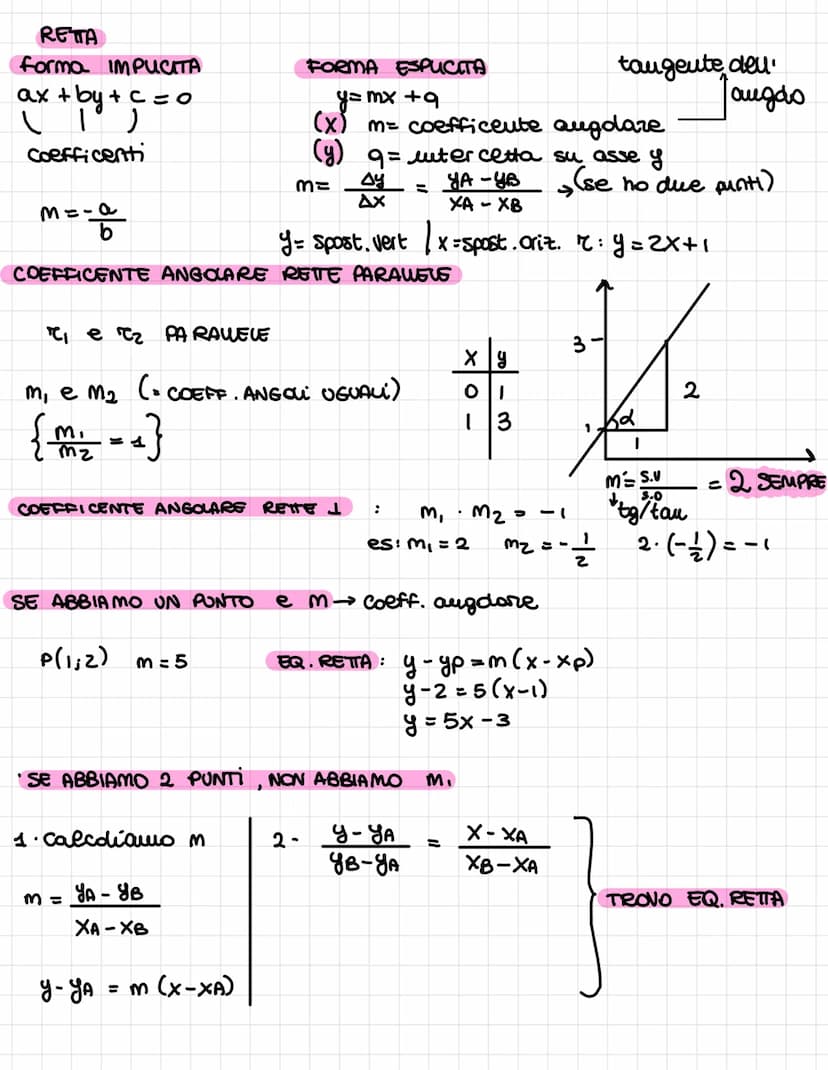 RETTA
forma IMPLICITA
ax + by + c = 0
coefficenti
m = - a/b
FORMA ESPLICITA
y = mx + q
(x) m = coefficente angolare
tangente dell'
angolo
(y) q = intercetta su asse y
m = Δy/Δx = yA - yB / xA - xB → (se ho due punti)
y = spost. vert | x = spost. oriz. r: y = 2x + 1
COEFFICENTE ANGOLARE RETTE PARALLELE
r1 e r2 PARALLELE
m1 e m2 (= COEFF. ANGOLI UGUALI)
{ m1/m2 = 1 }
x y
0 1
1 3
3
2
1 α
1
m = S.V/S.O = 2 SEMPRE
↓ tg/tan
COEFFICENTE ANGOLARE RETTE ⊥ : m1 · m2 = -1
es: m1 = 2 m2 = - 1/2 2 · (- 1/2) = -1
SE ABBIAMO UN PUNTO e m → coeff. angolare
P(1;2) m = 5
EQ. RETTA: y - yp = m (x - xp)
y - 2 = 5 (x - 1)
y = 5x - 3
· SE ABBIAMO 2 PUNTI, NON ABBIAMO m.
1 · calcoliamo m
m = yA - yB / xA - xB
y - yA = m (x - xA)
2 - y - yA / yB - yA = x - xA / xB - xA
TROVO EQ. RETTA